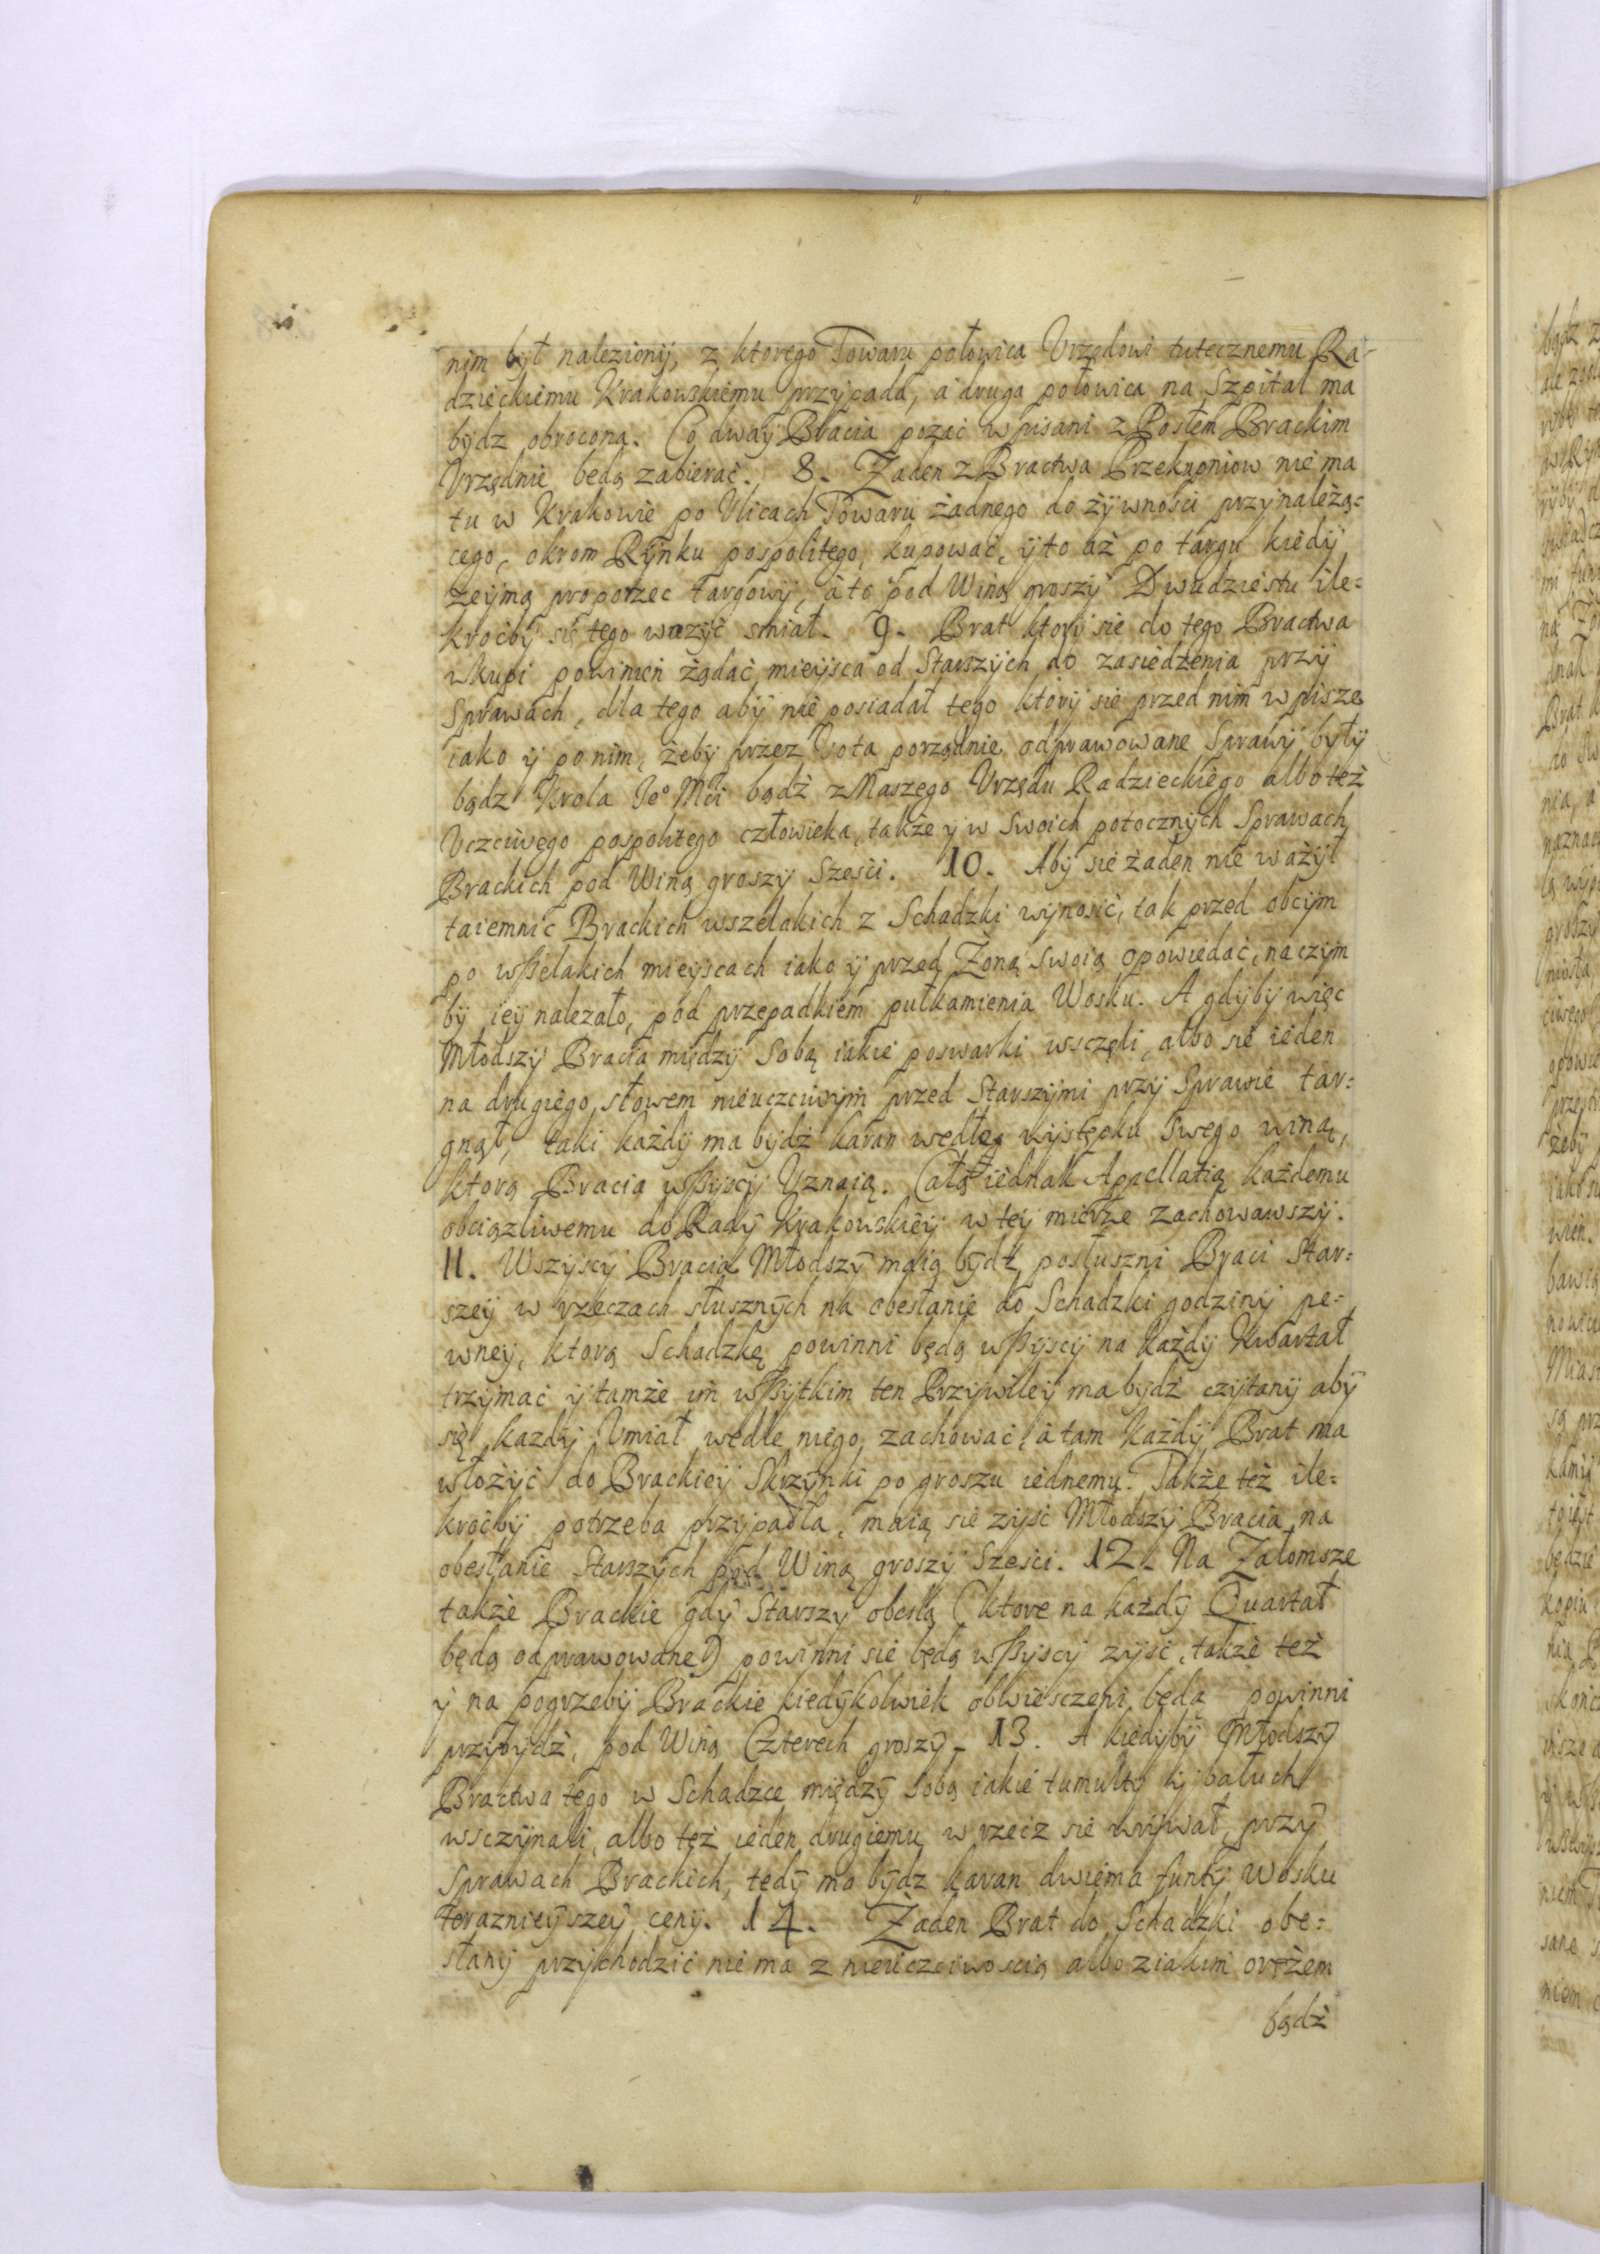 nim był nalezionÿ, z ktorego Towaru połowica Vrzędowi tutecznemu Ra-
dzieckiemu Krakowskiemu przÿpada, a druga połowica na Szpital ma
bÿdz obrocona. Co dway Bracia wpisani z Posłem Brackim
Vrzędnie będą zabierać. 8. Zaden z Bractwa Przekupniow nie ma
tu w Krakowie po Vlicach Towaru żadnego do żÿwności przÿnależą=
cego, okrom Rÿnku pospolitego, kupować, ÿ to aż po targu kiedÿ
zeÿmą proporzec targowÿ, à to pod Winą groszÿ Dwudziestu ile=
kroćbÿ się tego ważÿć smiał. 9. Brat ktorÿ sie do tego Bractwa
wkupi powinien żądać mieÿsca od Starszÿch do zasiedzenia przÿ
Sprawach, dla tego abÿ nie posiadał tego ktorÿ sie przed nim wpisze
iako ÿ po nim, żebÿ przez Vota porządnie odprawowane Sprawÿ bÿłÿ
bądz Krola Je° Mci bądź z Naszego Vrzędu Radzieckiego albo też
Vczciwego pospolitego człowieka, także ÿ w Swoich potocznÿch Sprawach
Brackich pod Winą groszÿ Sześci. 10. Abÿ sie żaden nie ważÿł
taiemnic Brackich wszelakich z Schadzki wÿnosić, tak przed obcÿm
po wszelakich mieÿscach iako ÿ przed Zoną swoią opowiedać, na czÿm
bÿ ieÿ nalezało, pod przepadkiem pułkamienia Wosku. A gdÿbÿ więc
Młodszÿ Bracia międzÿ Sobą iakie poswarki wsczęli, albo sie ieden
na drugiego słowem nieuczciwÿm przed Starszÿmi przÿ Sprawie tar=
gnął, taki każdÿ ma bÿdź karan według wÿstępku Swego winą,
ktorą Bracia wszÿscÿ Vznaią. Całą iednak Apellatią każdemu
obciązliwemu do Radÿ Krakowskieÿ w teÿ mierze zachowawszÿ.
11. Wszÿscÿ Bracia Młodszÿ maią bÿdź posłuszni Braci Star=
szeÿ w rzeczach słusznÿch na obesłanie do Schadzki godzinÿ pe=
wneÿ, ktorą Schadzkę powinni będą wszÿscÿ na każdÿ Kwartał
trzÿmać ÿ tamże im wszÿtkim ten Przÿwileÿ ma bÿdź czÿtanÿ abÿ
się kazdÿ Vmiał wedle niego zachować, à tam każdÿ Brat ma
włożÿć do Brackieÿ Skrzÿnki po groszu iednemu. Także też ile=
kroćbÿ potrzeba przÿpadła, maią sie zÿść Młodszÿ Bracia na
obesłanie Starszÿch pod Winą groszÿ Sześci. 12. Na Załomsze
także Brackie gdÿ Starszÿ obeslą (ktore na każdÿ Quartał
będą odprawowane) powinni sie będą wszÿscÿ zÿść, także też
ÿ na pogrzebÿ Brackie kiedÿkolwiek obwiesczeni będą powinni
przÿbÿdź, pod Winą Czterech groszÿ. 13. A kiedÿbÿ Młodszÿ
Bractwa tego w Schadzce międzÿ Sobą iakie tumultÿ ÿ bałuch
wsczÿnali, albo też ieden drugiemu w rzecz sie wrÿwał, przÿ
Sprawach Brackich, tedÿ ma bÿdz karan dwiema funtÿ Wosku
teraznieÿszeÿ cenÿ. 14. Żaden Brat do Schadzki obe=
słanÿ przÿchodzić nie ma z nieuczciwoscią albo z iakim orężem
bądź